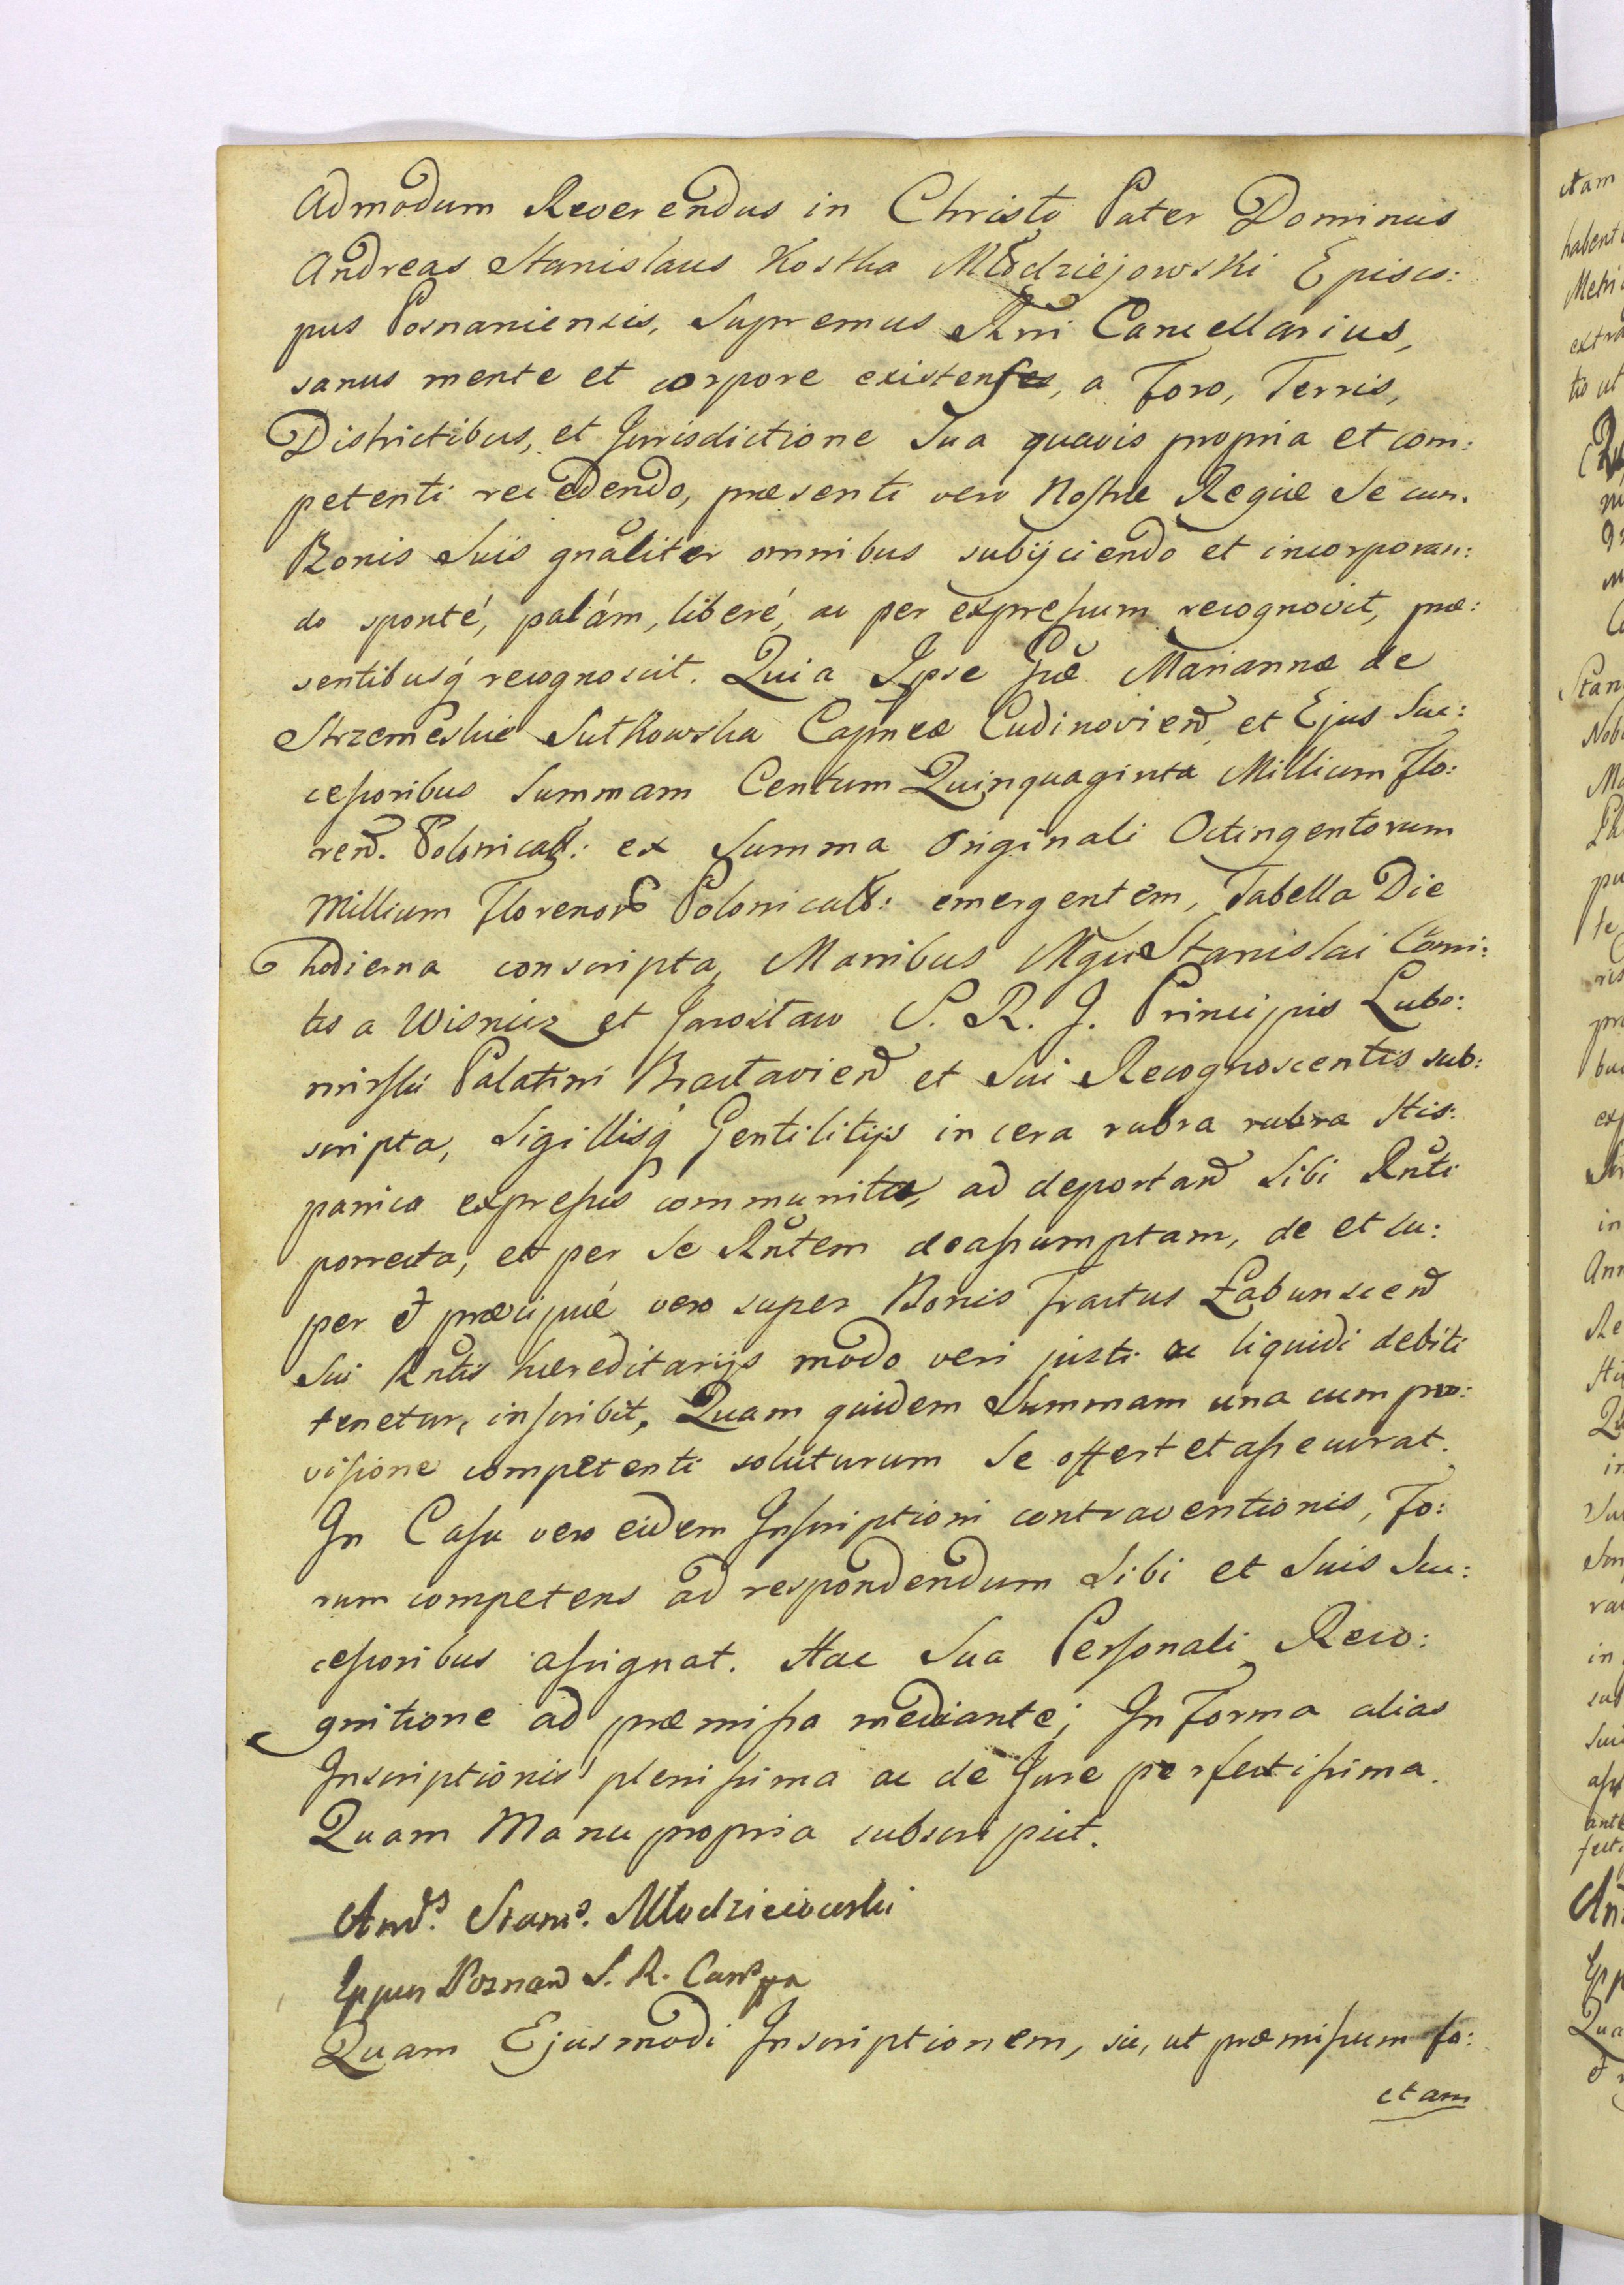 Admodum Reverendus in Christo Pater Dominus
Andreas Stanislaus Kostka Młodziejowski Episco:
pus Posnaniensis, Supremus Rni Cancellarius,
sanus mente et corpore existens, a Foro, Terris,
Districtibus, et Jurisdictione Sua quavis propria et com:
petenti recedendo, præsenti vero Nostræ Regiæ Se cum
Bonis Suis gnaliter omnibus subijciendo et incorporan:
do sponté, palám, liberé, ac per expressum recognovit, præ:
sentibusq́ recognoscit. Quia Ipse Gsæ Mariannæ de
Strzemeskie Sutkowska Capneæ Cudinovien et Ejus Suc:
cessoribus Summam Centum Quinquaginta Millium Flo:
ren. Polonical: ex Summa Originali Octingentorum
Millium Florenor Polonical: emergentem, Tabella Die
hodierna conscripta, Manibus Mgci Stanislai Comi:
tis a Wisnicz et Jarosław S. R. J. Principis Lubo:
mirski Palatini Bracłavien et Sui Recognoscentis sub:
scripta, Sigillisq́ Gentilitijs in cera rubra rubra His:
panica expressis communita, ad deportand Sibi Rnti
porrecta, et per Se Rntem deassumptam, de et su:
per et præcipué vero super Bonis Tractus Łabunscen
Sui Rntis hæreditarijs modo veri justi ac liquidi debiti
tenetur, inscribit, Quam quidem Summam una cum pro:
visione competenti soluturum Se offert et assecurat.
In Casu vero eidem Inscriptioni contraventionis, Fo:
rum competens ad respondendum Sibi et Suis Suc:
cessoribus assignat. Hac Sua Personali Reco:
gnitione ad præmissa mediante; In Forma alias
Inscriptionis plenissima ac de Jure perfectissima.
Quam Manu propria subscripsit.
And.s Stan.s Młodzieiowski
Eppus Poznan S. R. Canc
Quam Ejusmodi Inscriptionem, sic, ut præmissum fa:
ctam